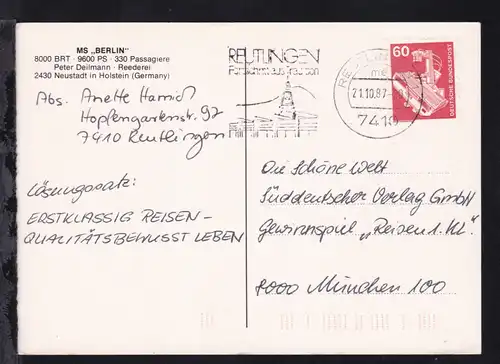 MS „BERLIN"
8000 BRT · 9600 PS · 330 Passagiere
Peter Deilmann · Reederei
2430 Neustadt in Holstein (Germany)
Abs. Anette Harnisch
Hopfengartenstr. 92
7410 Reutlingen
Lösungssatz:
ERSTKLASSIG REISEN -
QUALITÄTSBEWUSST LEBEN
REUTLINGEN
aus Tradition
21.10.87
7410
60
DEUTSCHE BUNDESPOST
Die Schöne Welt
Süddeutscher Verlag GmbH
Gewinnspiel „Reisen 1. Kl."
8000 München 100